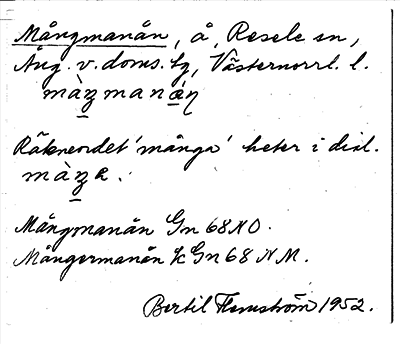 Mångmanån, å, Resele sn,
Ång. v. doms. lg, Västernorrl. l.
màŋmanáņ
Räkneordet 'många' heter i dial.
màŋa.
Mångmanån Gn 68 NO.
Mångermanån k Gn 68 NM.
Bertil Flemström 1952.